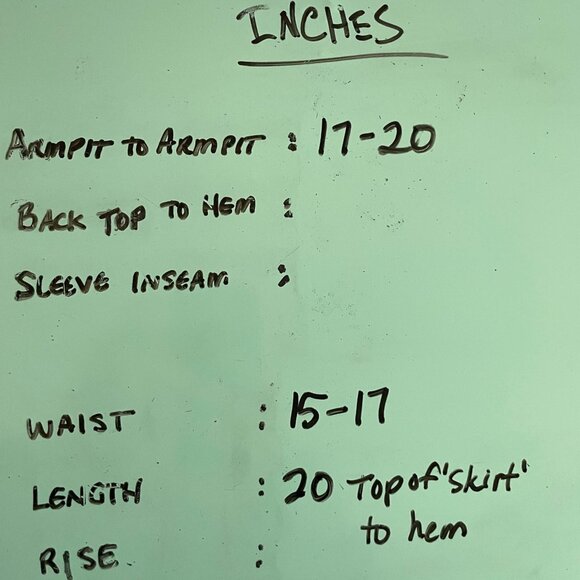 INCHES
ARMPIT TO ARMPIT : 17-20
BACK TOP TO HEM :
SLEEVE INSEAM :
WAIST : 15-17
LENGTH : 20 Top of 'skirt'
to hem
RISE :